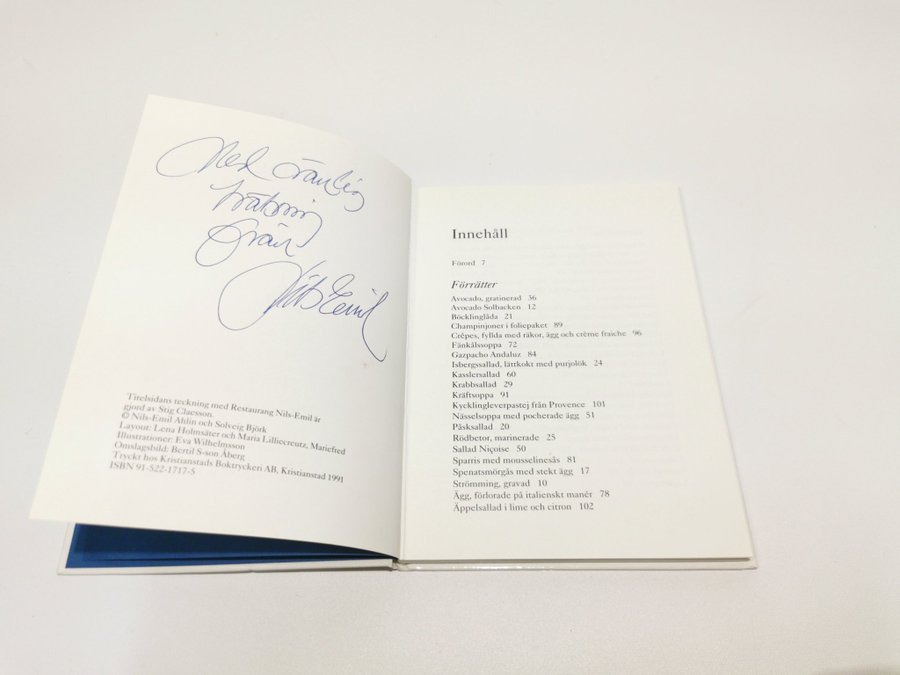 Med vänlig
hälsning
från
Nils Emil
Titelsidans teckning med Restaurang Nils-Emil är
gjord av Stig Claesson.
© Nils-Emil Ahlin och Solveig Björk
Layout: Lena Holmsäter och Maria Lilliecreutz, Mariefred
Illustrationer: Eva Wilhelmsson
Omslagsbild: Bertil S-son Åberg
Tryckt hos Kristianstads Boktryckeri AB, Kristianstad 1991
ISBN 91-522-1717-5
Innehåll
Förord 7
Förrätter
Avocado, gratinerad 36
Avocado Solbacken 12
Böcklinglåda 21
Champinjoner i foliepaket 89
Crêpes, fyllda med räkor, ägg och crème fraiche 96
Fänkålssoppa 72
Gazpacho Andaluz 84
Isbergssallad, lättkokt med purjolök 24
Kasslersallad 60
Krabbsallad 29
Kräftsoppa 91
Kycklingleverpastej från Provence 101
Nässelsoppa med pocherade ägg 51
Påsksallad 20
Rödbetor, marinerade 25
Sallad Niçoise 50
Sparris med mousselinesås 81
Spenatsmörgås med stekt ägg 17
Strömming, gravad 10
Ägg, förlorade på italienskt manér 78
Äppelsallad i lime och citron 102